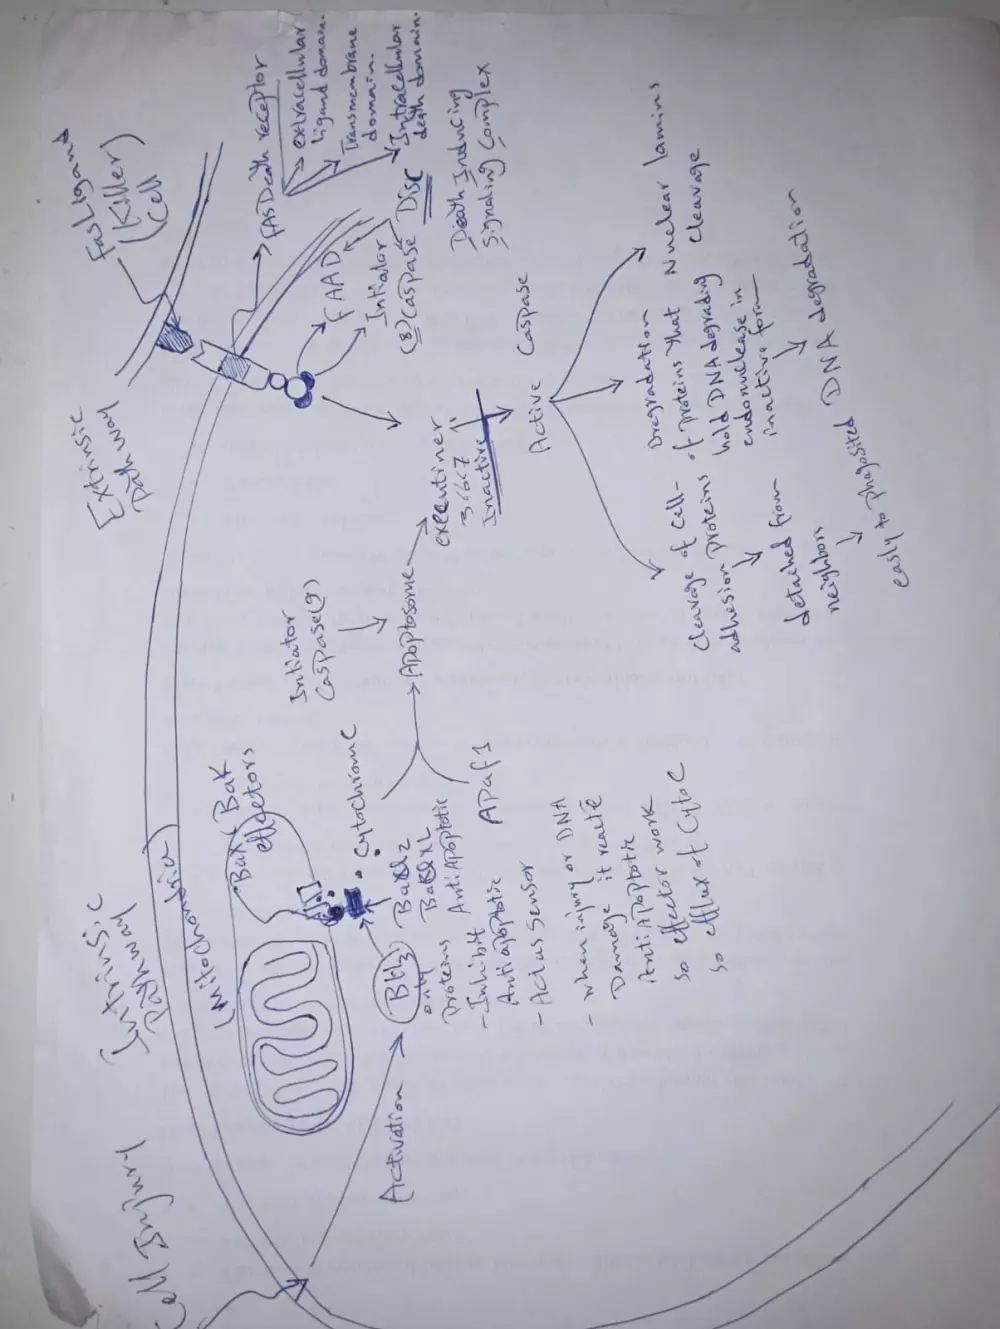 Cell Injury
Intrinsic
Pathway
(Mitochondria)
Bax/Bak
effectors
Activation
BH3
only
proteins
- Inhibit
Antiapoptotic
- Act as sensor
- when injury or DNA
Damage it reacte
AntiApoptotic
so effector work
so efflux of Cyto C
AntiApoptotic
Cytochrome C
Apaf1
Intiator
Caspase(9)
Apoptosome
Extrinsic
Pathway
FasLigand
(Killer)
Cell
FAS Death receptor
extracellular
ligand domain.
Transmembrane
domain.
Intracellular
death domain.
FAAD
Intiator
(8) Caspase
Disc
Death Inducing
Signaling Complex
executiner
3,6,7
Inactive
Active Caspase
Cleavage of Cell-
adhesion proteins
detached from
neighbors
easly to phagosited
Dregradation
of proteins that
hold DNA degrading
endonuclease in
inactive form
DNA degradation
Nuclear lamins
cleavage